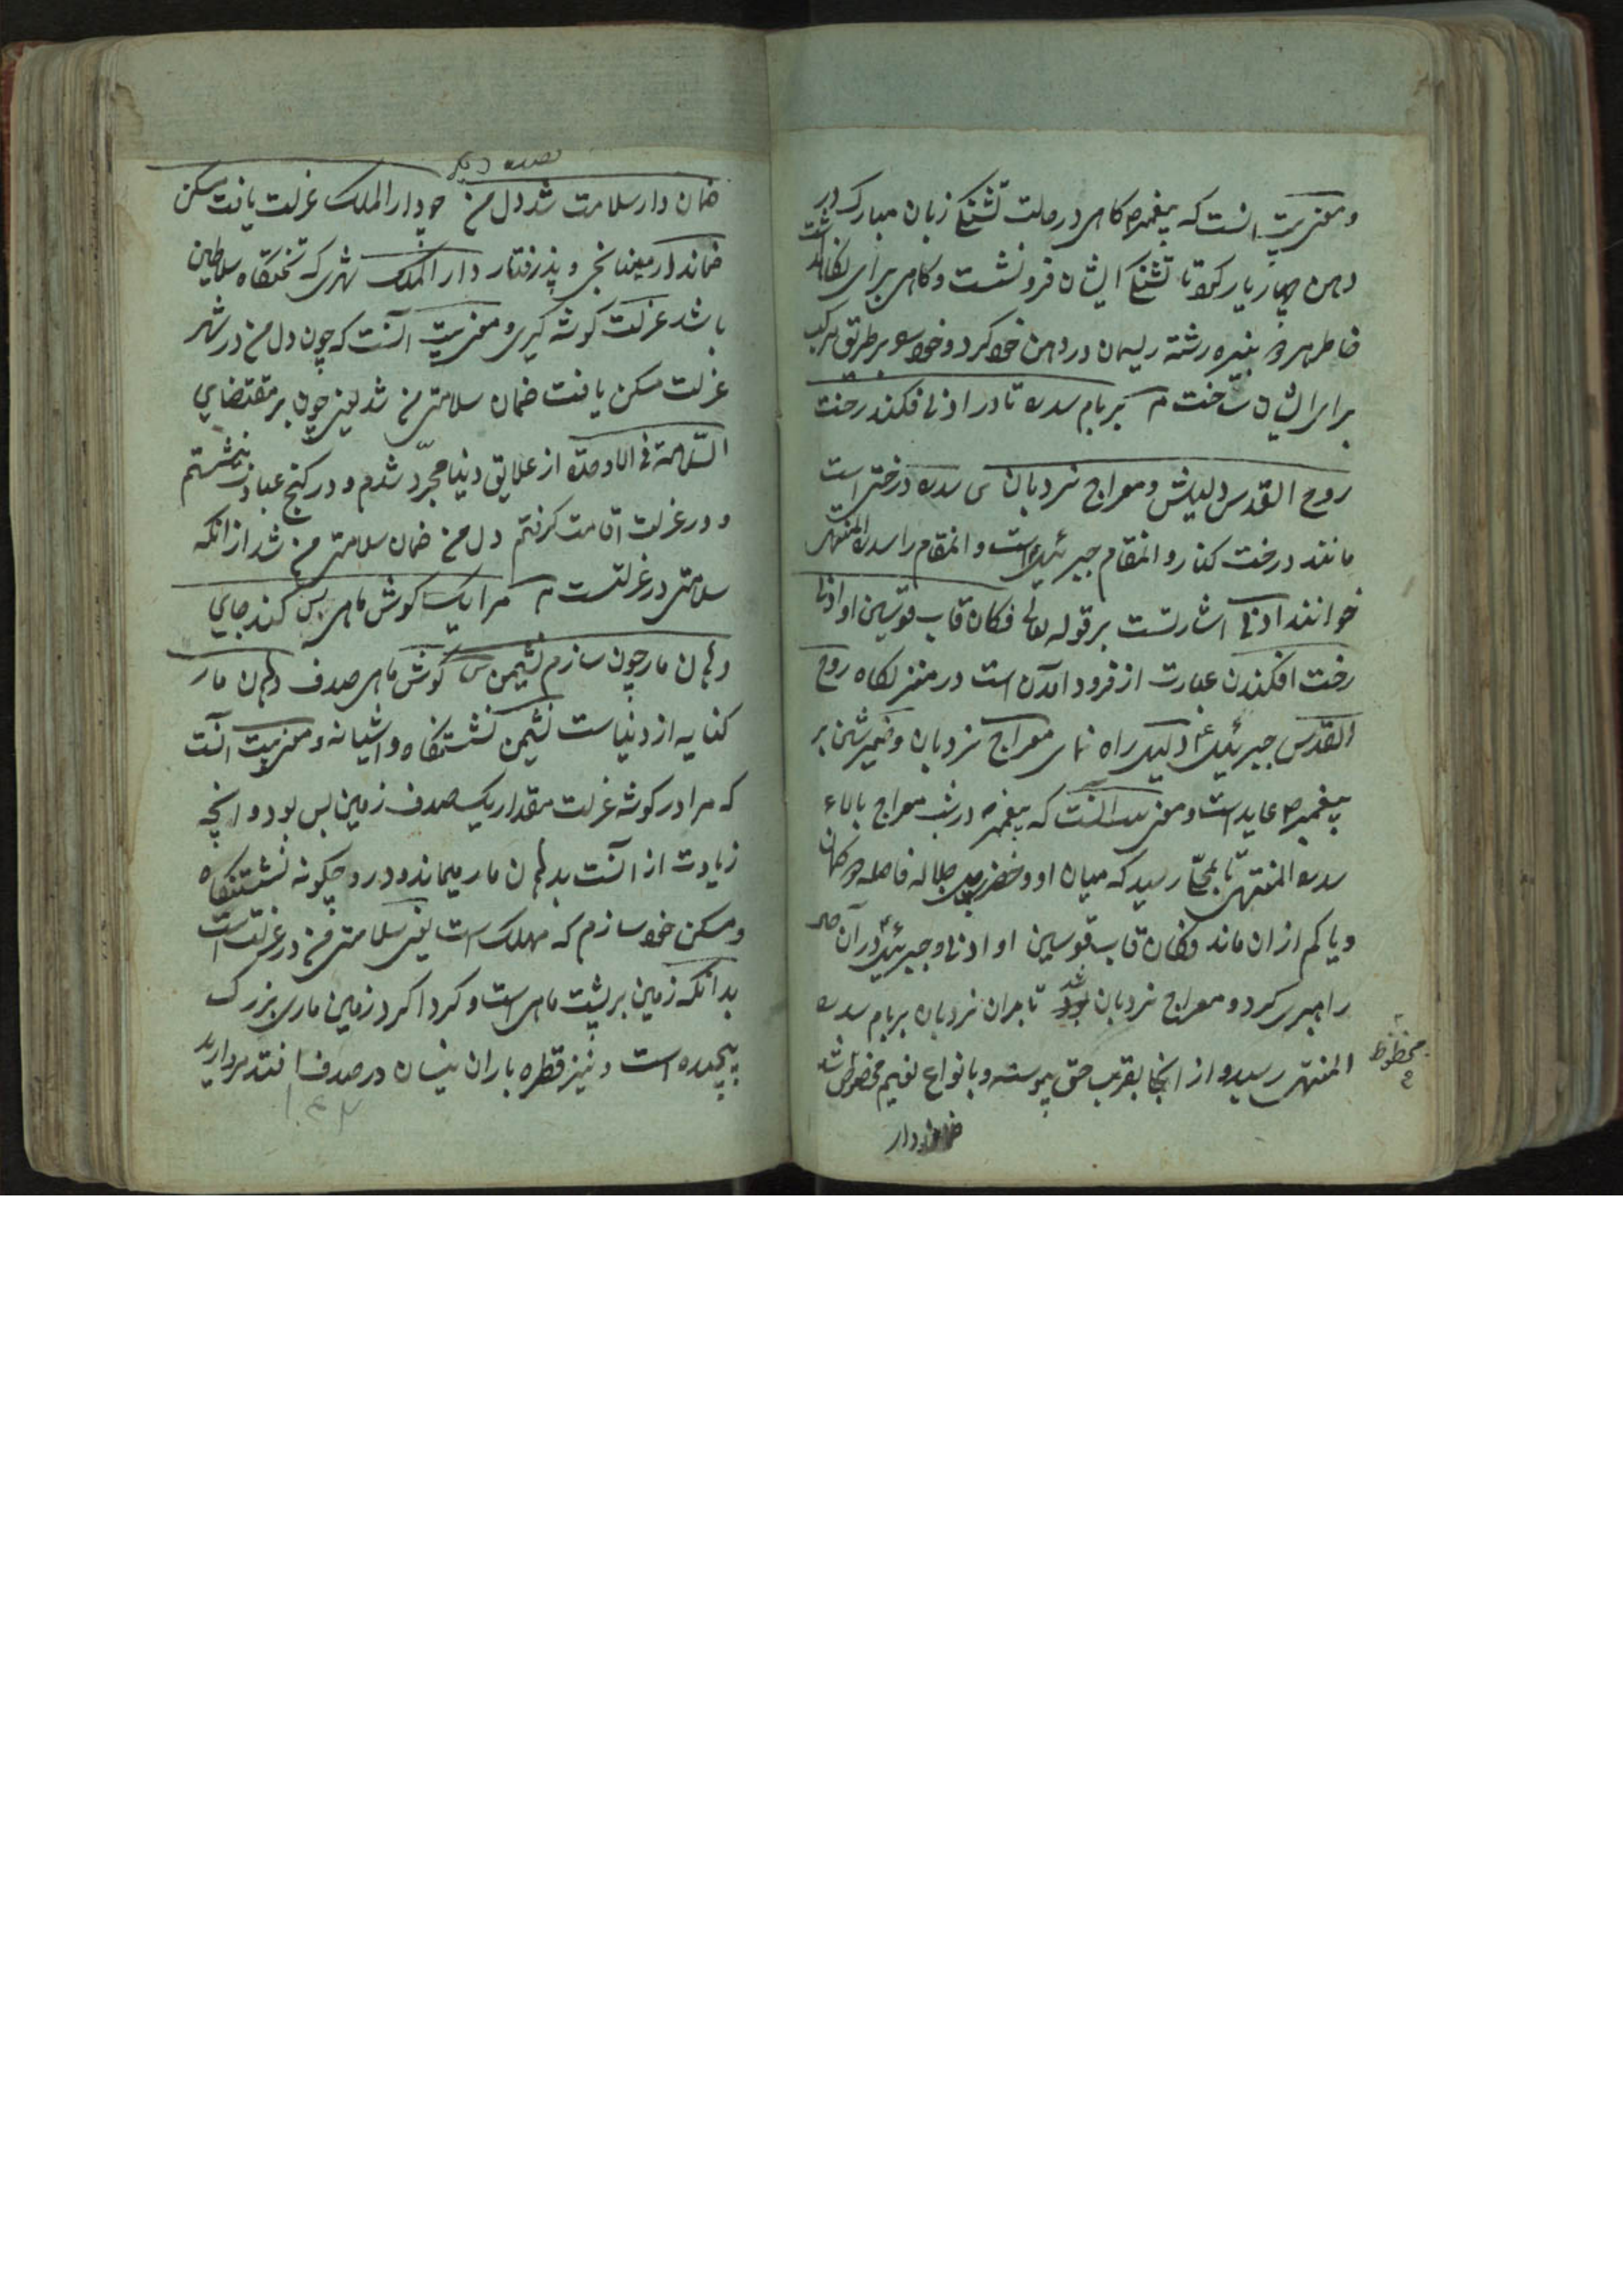 و معنی بیت انست که پیغمبر ص کاهی در حالت تشنکی زبان مبارک در
دهن چهار یار کرد تا تشنکی ایشان فرو نشست و کاهی برای نکاهداشت
خاطر هر دو نبیره رشته ریسمان در دهن خود کرد و خود را بر طریق مرکب
برای ایشان ساخت م بر بام سدره تا در ادنی فکند رخت
روح القدس دلیلش و معراج نردبان س سدره درختی است
مانند درخت کنار و انمقام جبرئیل ع است و انمقام را سدره المنتهی
خوانند ادنی اشارتست بر قوله تعالی فکان قاب قوسین او ادنی
رخت افکندن عبارت از فرود امدن است در منزلکاه روح
القدس جبرئیل ع دلیل راه نمای معراج نردبان و ضمیر شین بر
پیغمبر ص عاید است و معنی بیت آنست که پیغمبر ص در شب معراج بالاء
سدره المنتهی تا بجائی رسید که میان او و حضرت جل جلاله فاصله دو کمان
و یا کم از ان ماند فکان قاب قوسین او ادنی و جبرئیل ع در آن حال
راهبری کرد و معراج نردبان شد تا بران نردبان بر بام سدره
المنتهی رسید و از انجا بقرب حق پیوسته و بانواع نعیم مخصوص شد
محظوظ
ضماندار
قصیده دیکر
ضمان دار سلامت شد دل من چو دار الملک عزلت یافت مسکن
ضماندار میانجی و پذرفتار دار الملک شهری که تختکاه سلاطین
باشد عزلت کوشه کیری و معنی بیت آنست که چون دل من در شهر
عزلت مسکن یافت ضمان سلامتی من شد یعنی چون بر مقتضای
السلامة فی الوحدة از علایق دنیا مجرّد شدم و در کنج عبادت نشستم
و در عزلت اقامت کرفتم دل من ضمان سلامتی من شد از انکه
سلامتی در عزلتست م مرا یک کوش ماهی بس کند جای
دهان مار چون سازم نشیمن س کوش ماهی صدف دهان مار
کنایه از دنیاست نشیمن نشستنکاه و اشیانه و معنی بیت آنست
که مرا در کوشه عزلت مقدار یک صدف زمین بس بود و انچه
زیادت از انست بدهان مار میماند و در و چکونه نشستنکاه
و مسکن خود سازم که مهلک است یعنی سلامتی من در عزلت است
بدانکه زمین بر پشت ماهی است و کرداکرد زمین ماری بزرک
پیچیده است و نیز قطره باران نیسان در صدف افتد مروارید